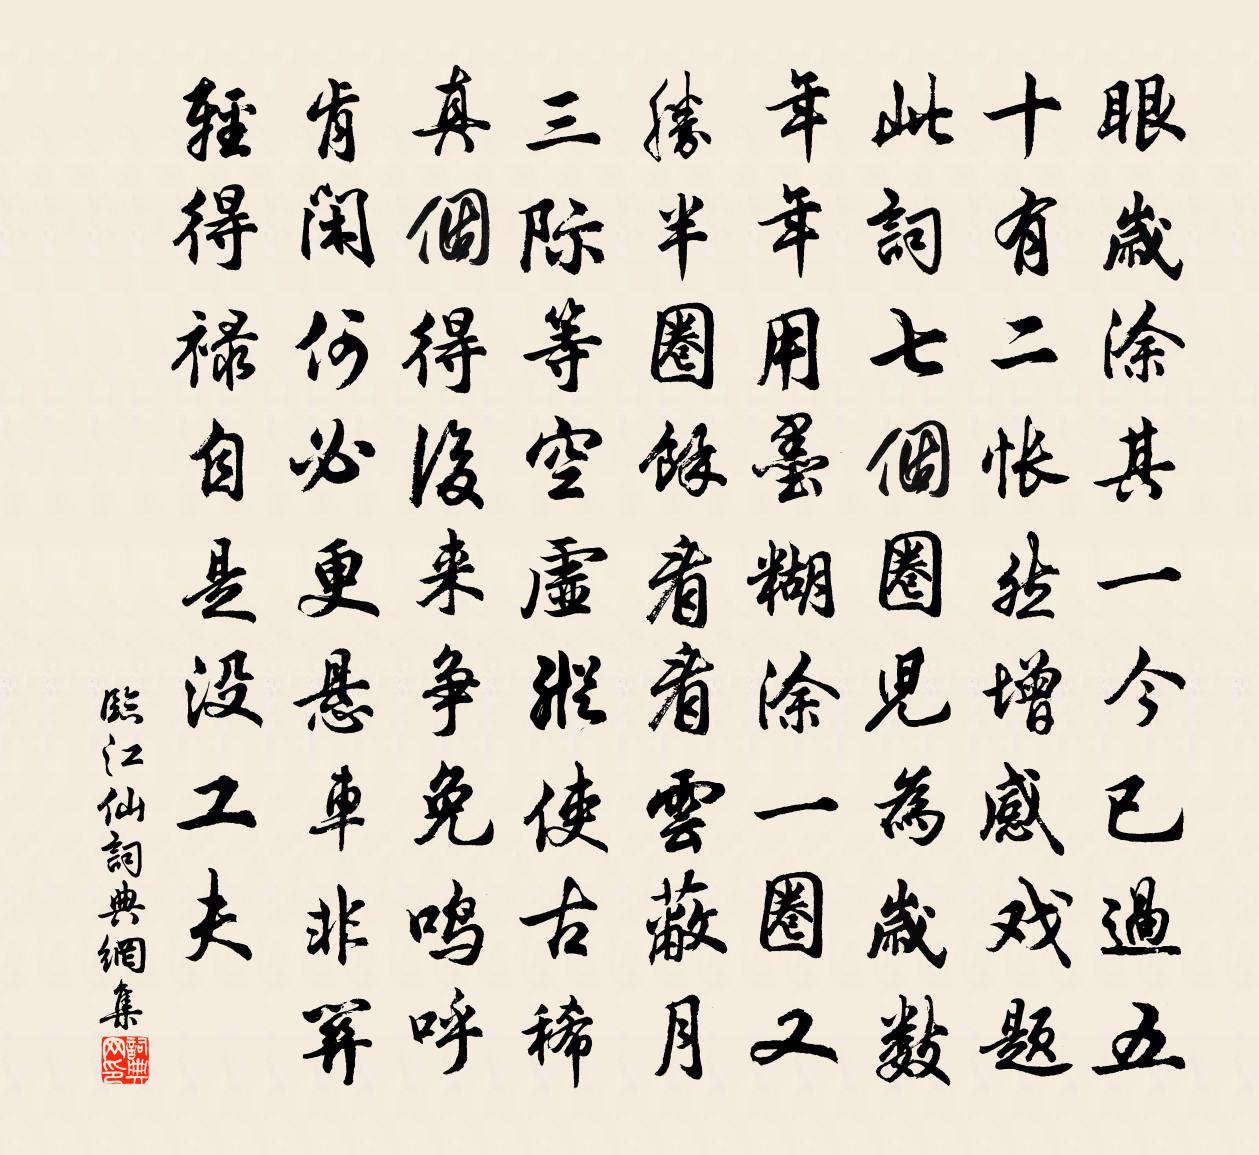 眼歲涂其一今已過五
十有二怅然增感戏題
此詞七個圈兒為歲數
年年用墨糊涂一圈又
勝半圈餘看看雲蔽月
三际等空虛縱使古稀
真個得後来争免鸣呼
肯閑何必更悬車非關
輕得禄自是没工夫
臨江仙詞典網集
詞典网印